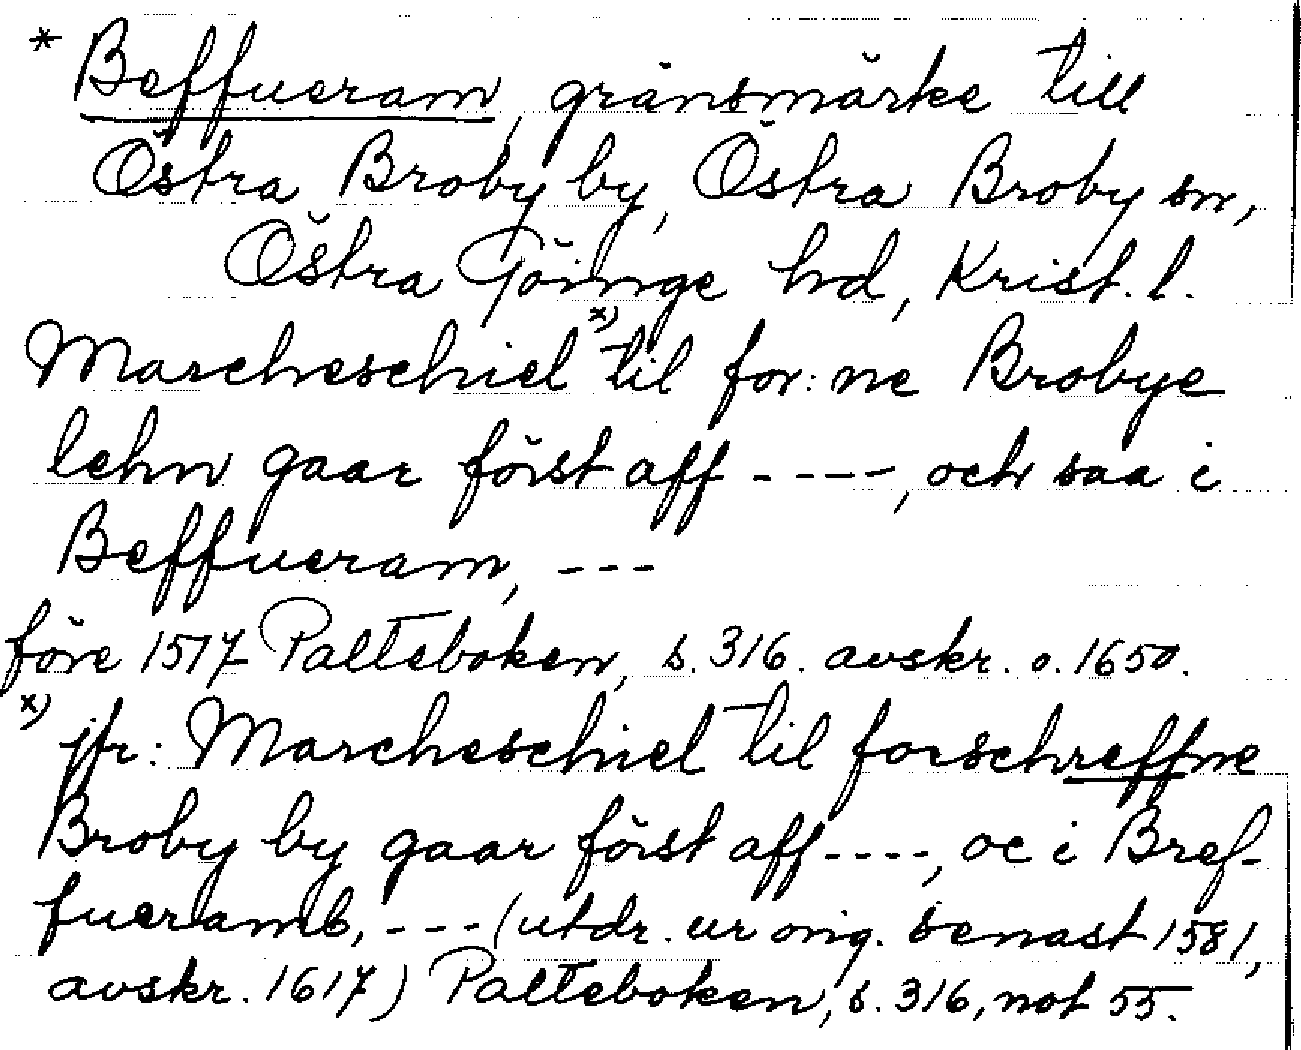 * Beffueram, gränsmärke till
Östra Broby by, Östra Broby sn,
Östra Göinge hd, Krist. l.
Marcheschiel x) til for:ne Brobye
lehn gaar först aff ----, och saa i
Beffueram, ---
före 1517 Palteboken, s. 316. avskr. o. 1650.
x) jfr: Marcheschiel til forschreffne
Broby by gaar först aff ----, oc i Bref-
fueramb, --- (utdr. ur orig. senast 1581,
avskr. 1617) Palteboken, s. 316, not 55.